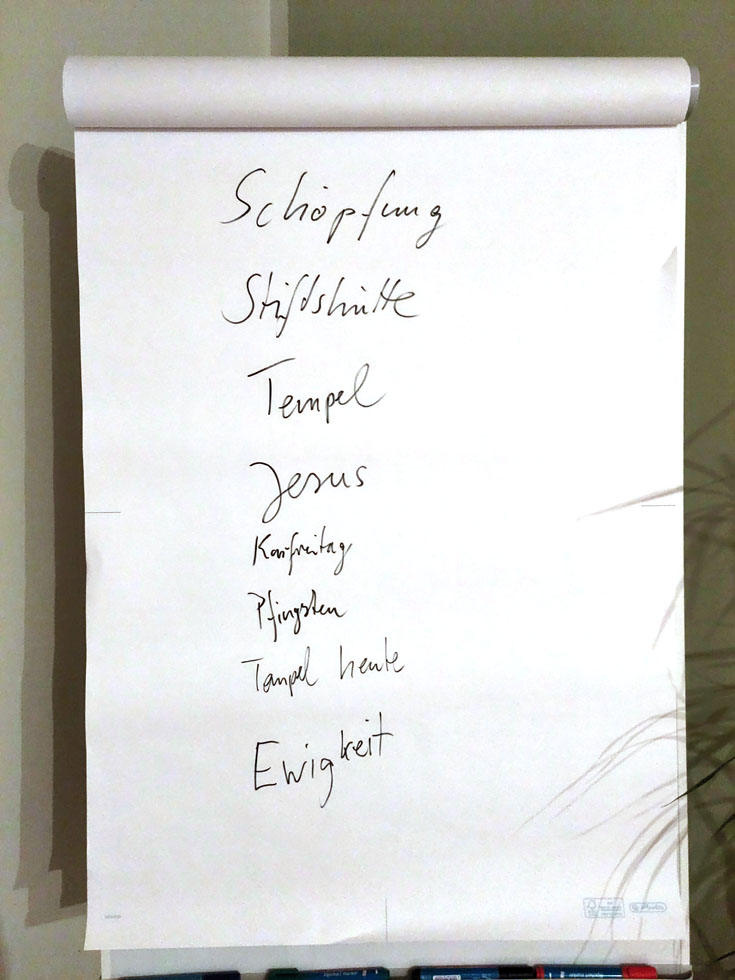 Schöpfung
Stiftshütte
Tempel
Jesus
Karfreitag
Pfingsten
Tempel heute
Ewigkeit